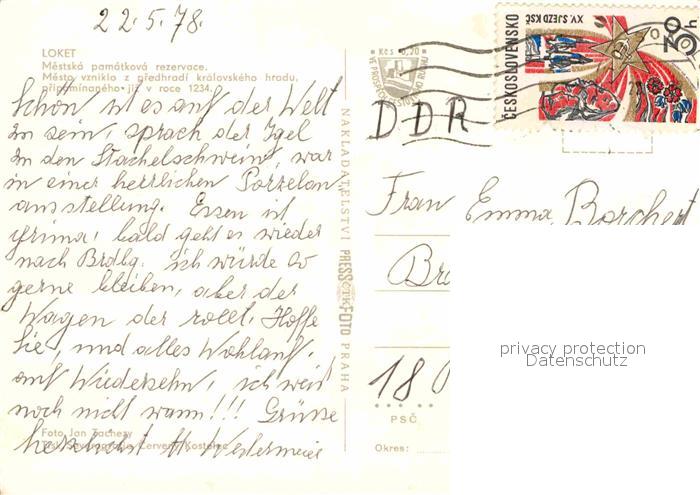 22.5.78.
LOKET
Městská památková rezervace.
Město vzniklo z předhradí královského hradu,
připomínaného již v roce 1234.
Schön ist es auf der Welt
zu sein, sprach der Igel
zu den Stachelschwein, war
in einer herrlichen Porzelan
ausstellung. Essen ist
prima, bald geht es wieder
nach Brdbg. ich würde so
gerne bleiben, aber der
Wagen der rollt. Hoffe
Sie, und alles Wohlauf,
auf Wiedersehn, ich weis
noch nicht wann!!! Grüsse
herzlichst H
Foto Jan Tachezy
Červený Kostelec
NAKLADATELSTVÍ PRESSFOTO PRAHA
ČTK
Kčs 0,20
VE PROSPĚCH CESTOVNÍHO RUCHU
ČESKOSLOVENSKO
XV. SJEZD KSČ
30 h
DDR
Frau Emma Borchert
Br
180
PSČ
Okres:
privacy protection
Datenschutz